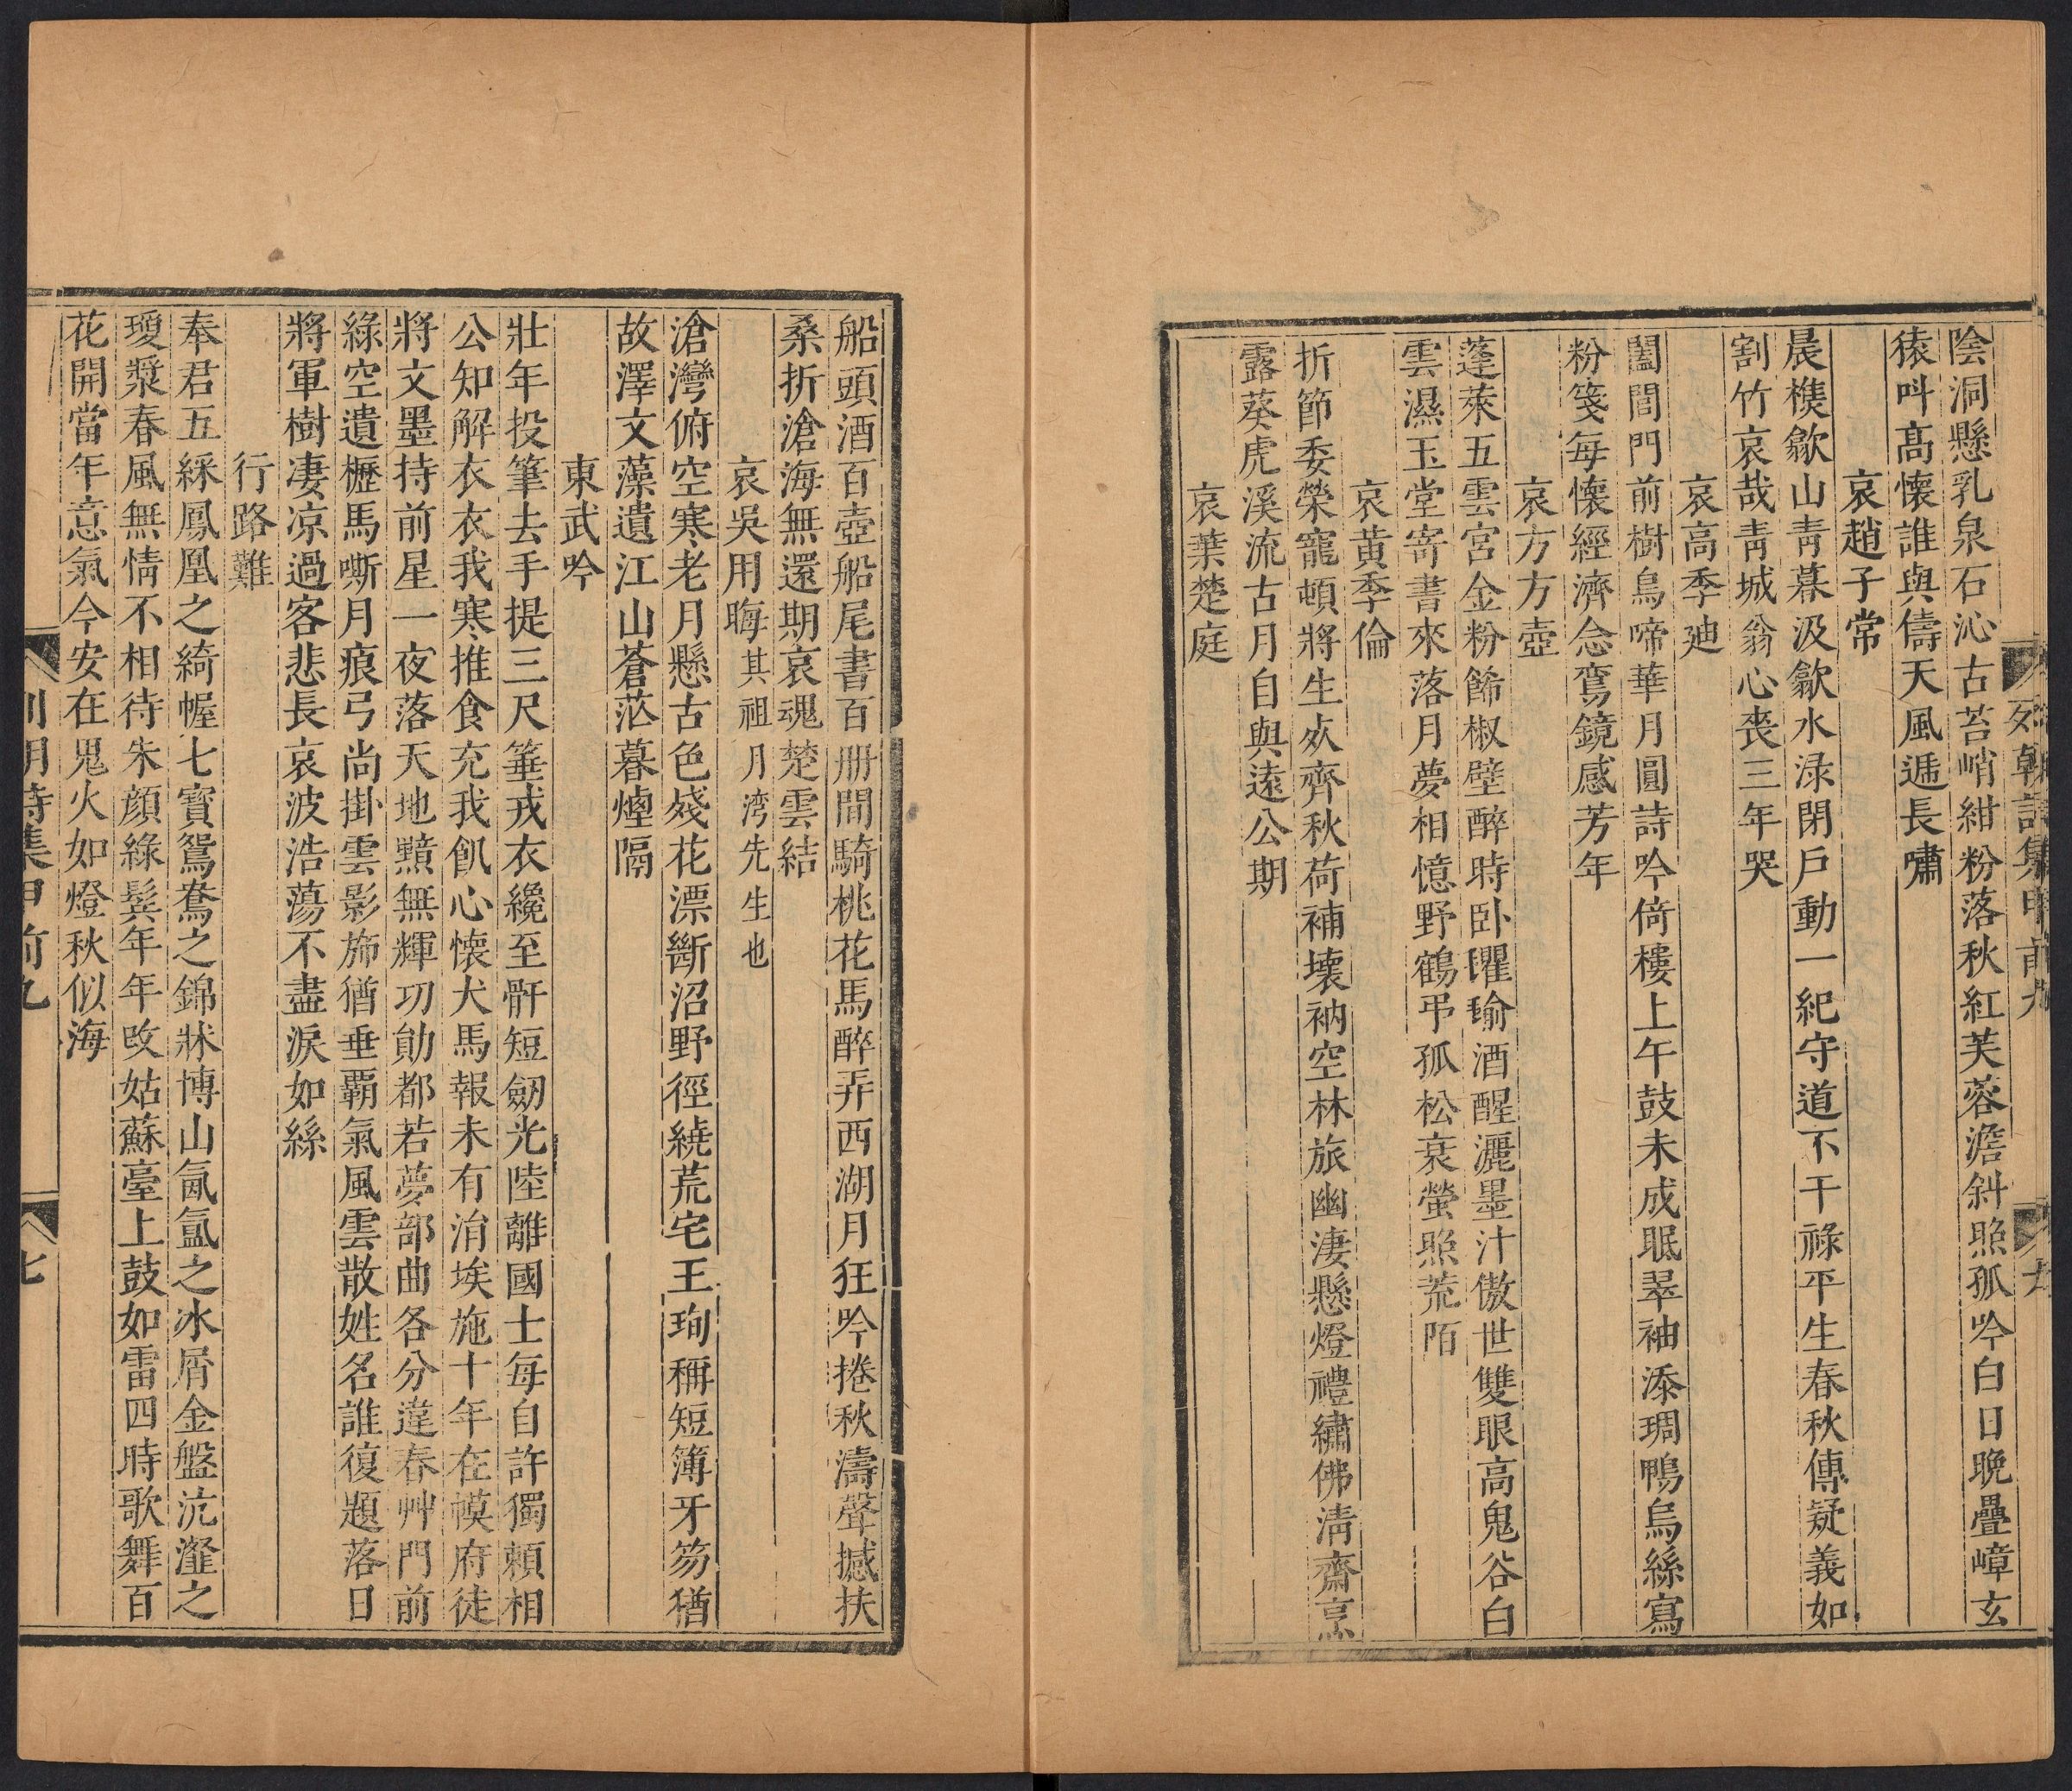 列朝詩集甲前九
陰洞懸乳泉石沁古苔峭紺粉落秋紅芙蓉澹斜照孤吟白日晩疊嶂玄
猿呌髙懷誰與儔天風遞長嘯
哀趙子常
晨樵歙山靑暮汲歙水淥閉戶動一紀守道不干祿平生春秋傳疑義如
割竹哀哉靑城翁心喪三年哭
哀高季廸
闔閭門前樹烏啼華月圓詩吟倚樓上午鼓未成眠翠袖添琱鴨烏絲寫
粉箋每懷經濟念鸞鏡感芳年
哀方方壺
蓬萊五雲宮金粉餙椒壁醉時卧瓘瑜酒醒灑墨汁傲世雙眼高鬼谷白
雲濕玉堂寄書來落月夢相憶野鶴弔孤松衰螢照荒陌
哀黃季倫
折節委榮寵頓將生𣦸齊秋荷補壞衲空林旅幽淒懸燈禮繡佛淸齋烹
露葵虎溪流古月自與遠公期
哀葉楚庭
船頭酒百壺船尾書百冊間騎桃花馬醉弄西湖月狂吟捲秋濤聲撼扶
桑折滄海無還期哀魂楚雲結
哀吳用晦其祖月湾先生也
滄灣俯空寒老月懸古色殘花漂斷沼野徑繞荒宅王珣稱短簿牙笏猶
故澤文藻遺江山蒼茫暮煙隔
東武吟
壯年投筆去手提三尺箠戎衣纔至骭短劒光陸離國士每自許獨頼相
公知解衣衣我寒推食充我飢心懷犬馬報未有涓埃施十年在幙府徒
將文墨持前星一夜落天地黯無輝功勛都若夢部曲各分違春艸門前
綠空遺櫪馬嘶月痕弓尚掛雲影斾猶垂覇氣風雲散姓名誰復題落日
將軍樹凄凉過客悲長哀波浩蕩不盡淚如絲
行路難
奉君五綵鳳凰之綺幄七寶鴛鴦之錦牀博山氤氳之水屑金盤沆瀣之
瓊漿春風無情不相待朱顔綠鬂年年改姑蘇臺上鼓如雷四時歌舞百
花開當年意氣今安在鬼火如燈秋似海
列朝詩集甲前九
七